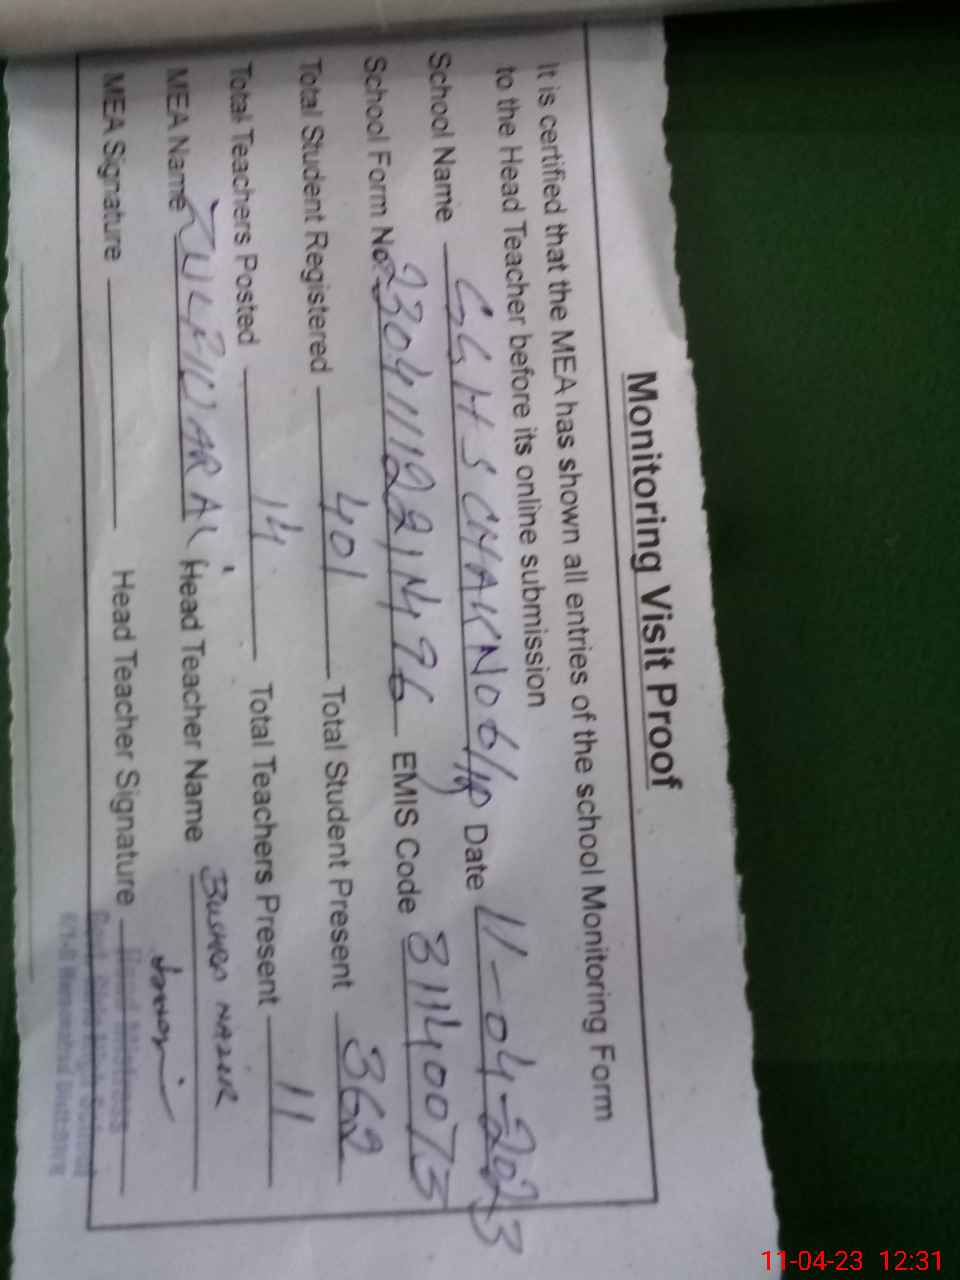 Monitoring Visit Proof
It is certified that the MEA has shown all entries of the school Monitoring Form
to the Head Teacher before its online submission
School Name GGHS CHAK NO 6/1P Date 11-04-2023
School Form No. EMIS Code 31140073
Total Student Registered 401 Total Student Present 362
Total Teachers Posted 14 Total Teachers Present 11
MEA Name ZULFIQAR ALI Head Teacher Name Bushra NAZIR
MEA Signature Head Teacher Signature
Head Mistress
11-04-23 12:31